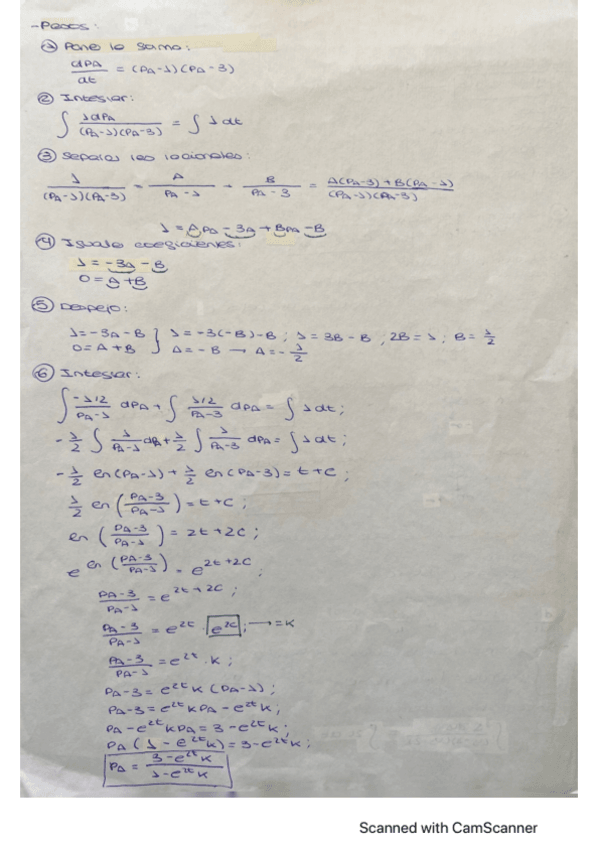 -Pasos:
① Pone lo suma:
dPA/dt = (PA-1)(PA-3)
② Integrar:
∫ 1dPA/((PA-1)(PA-3)) = ∫ 1 dt
③ Separar los racionales:
1/((PA-1)(PA-3)) = A/(PA-1) + B/(PA-3) = (A(PA-3)+B(PA-1))/((PA-1)(PA-3))
1 = APA - 3A + BPA - B
④ Igualo coeficientes:
1 = -3A - B
0 = A + B
⑤ Despejo:
1=-3A-B } 1=-3(-B)-B ; 1=3B-B ; 2B=1 ; B=1/2
0=A+B } A=-B → A=-1/2
⑥ Integrar:
∫ (-1/2)/(PA-1) dPA + ∫ (1/2)/(PA-3) dPA = ∫ 1 dt ;
-1/2 ∫ 1/(PA-1) dPA + 1/2 ∫ 1/(PA-3) dPA = ∫ 1 dt ;
-1/2 ln(PA-1) + 1/2 ln(PA-3) = t+C ;
1/2 ln((PA-3)/(PA-1)) = t+C ;
ln((PA-3)/(PA-1)) = 2t+2C ;
e^ln((PA-3)/(PA-1)) = e^(2t+2C) ;
(PA-3)/(PA-1) = e^(2t+2C) ;
(PA-3)/(PA-1) = e^2t · e^2C ; → =K
(PA-3)/(PA-1) = e^2t · K ;
PA-3 = e^2t K (PA-1) ;
PA-3 = e^2t K PA - e^2t K ;
PA - e^2t K PA = 3 - e^2t K ;
PA (1 - e^2t K) = 3 - e^2t K ;
PA = (3 - e^2t K)/(1 - e^2t K)
Scanned with CamScanner